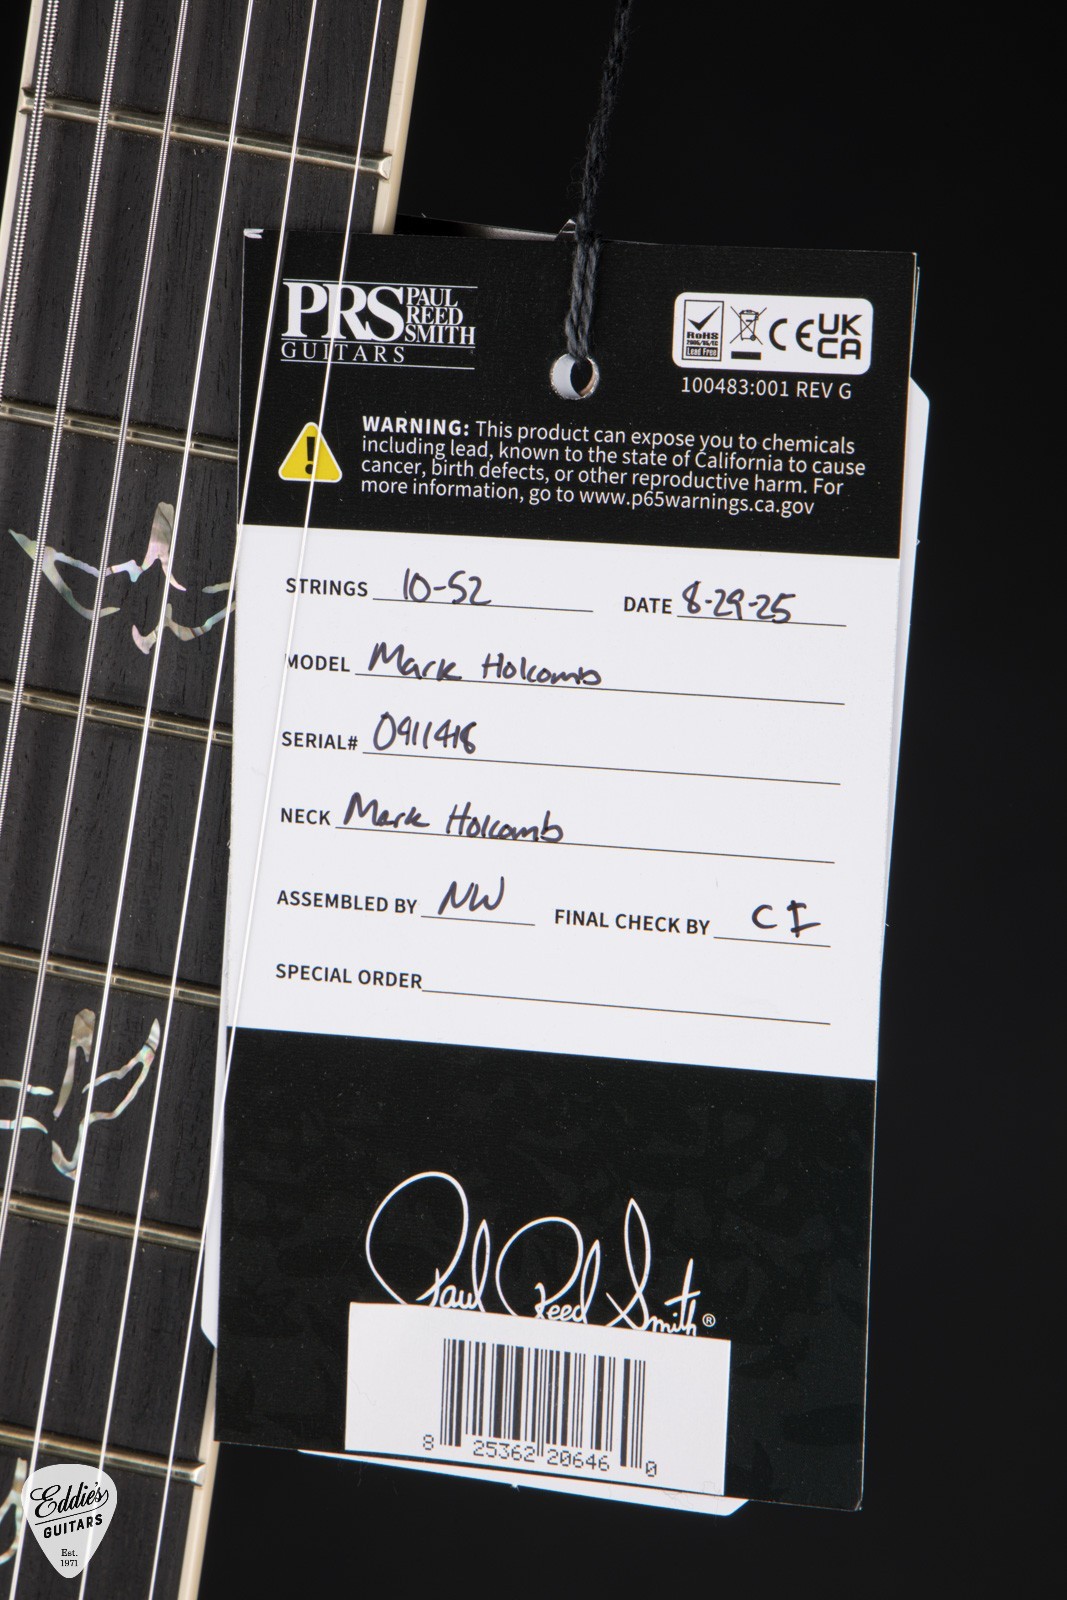 PRS PAUL
REED
SMITH
GUITARS
RoHS
2006/95/EC
Lead Free
CE
UK
CA
100483:001 REV G
WARNING: This product can expose you to chemicals
including lead, known to the state of California to cause
cancer, birth defects, or other reproductive harm. For
more information, go to www.p65warnings.ca.gov
STRINGS 10-52 DATE 8-29-25
MODEL Mark Holcomb
SERIAL# 0911418
NECK Mark Holcomb
ASSEMBLED BY NW FINAL CHECK BY CI
SPECIAL ORDER
Paul Reed Smith®
8 25362 20646 0
Eddie's
GUITARS
Est.
1971